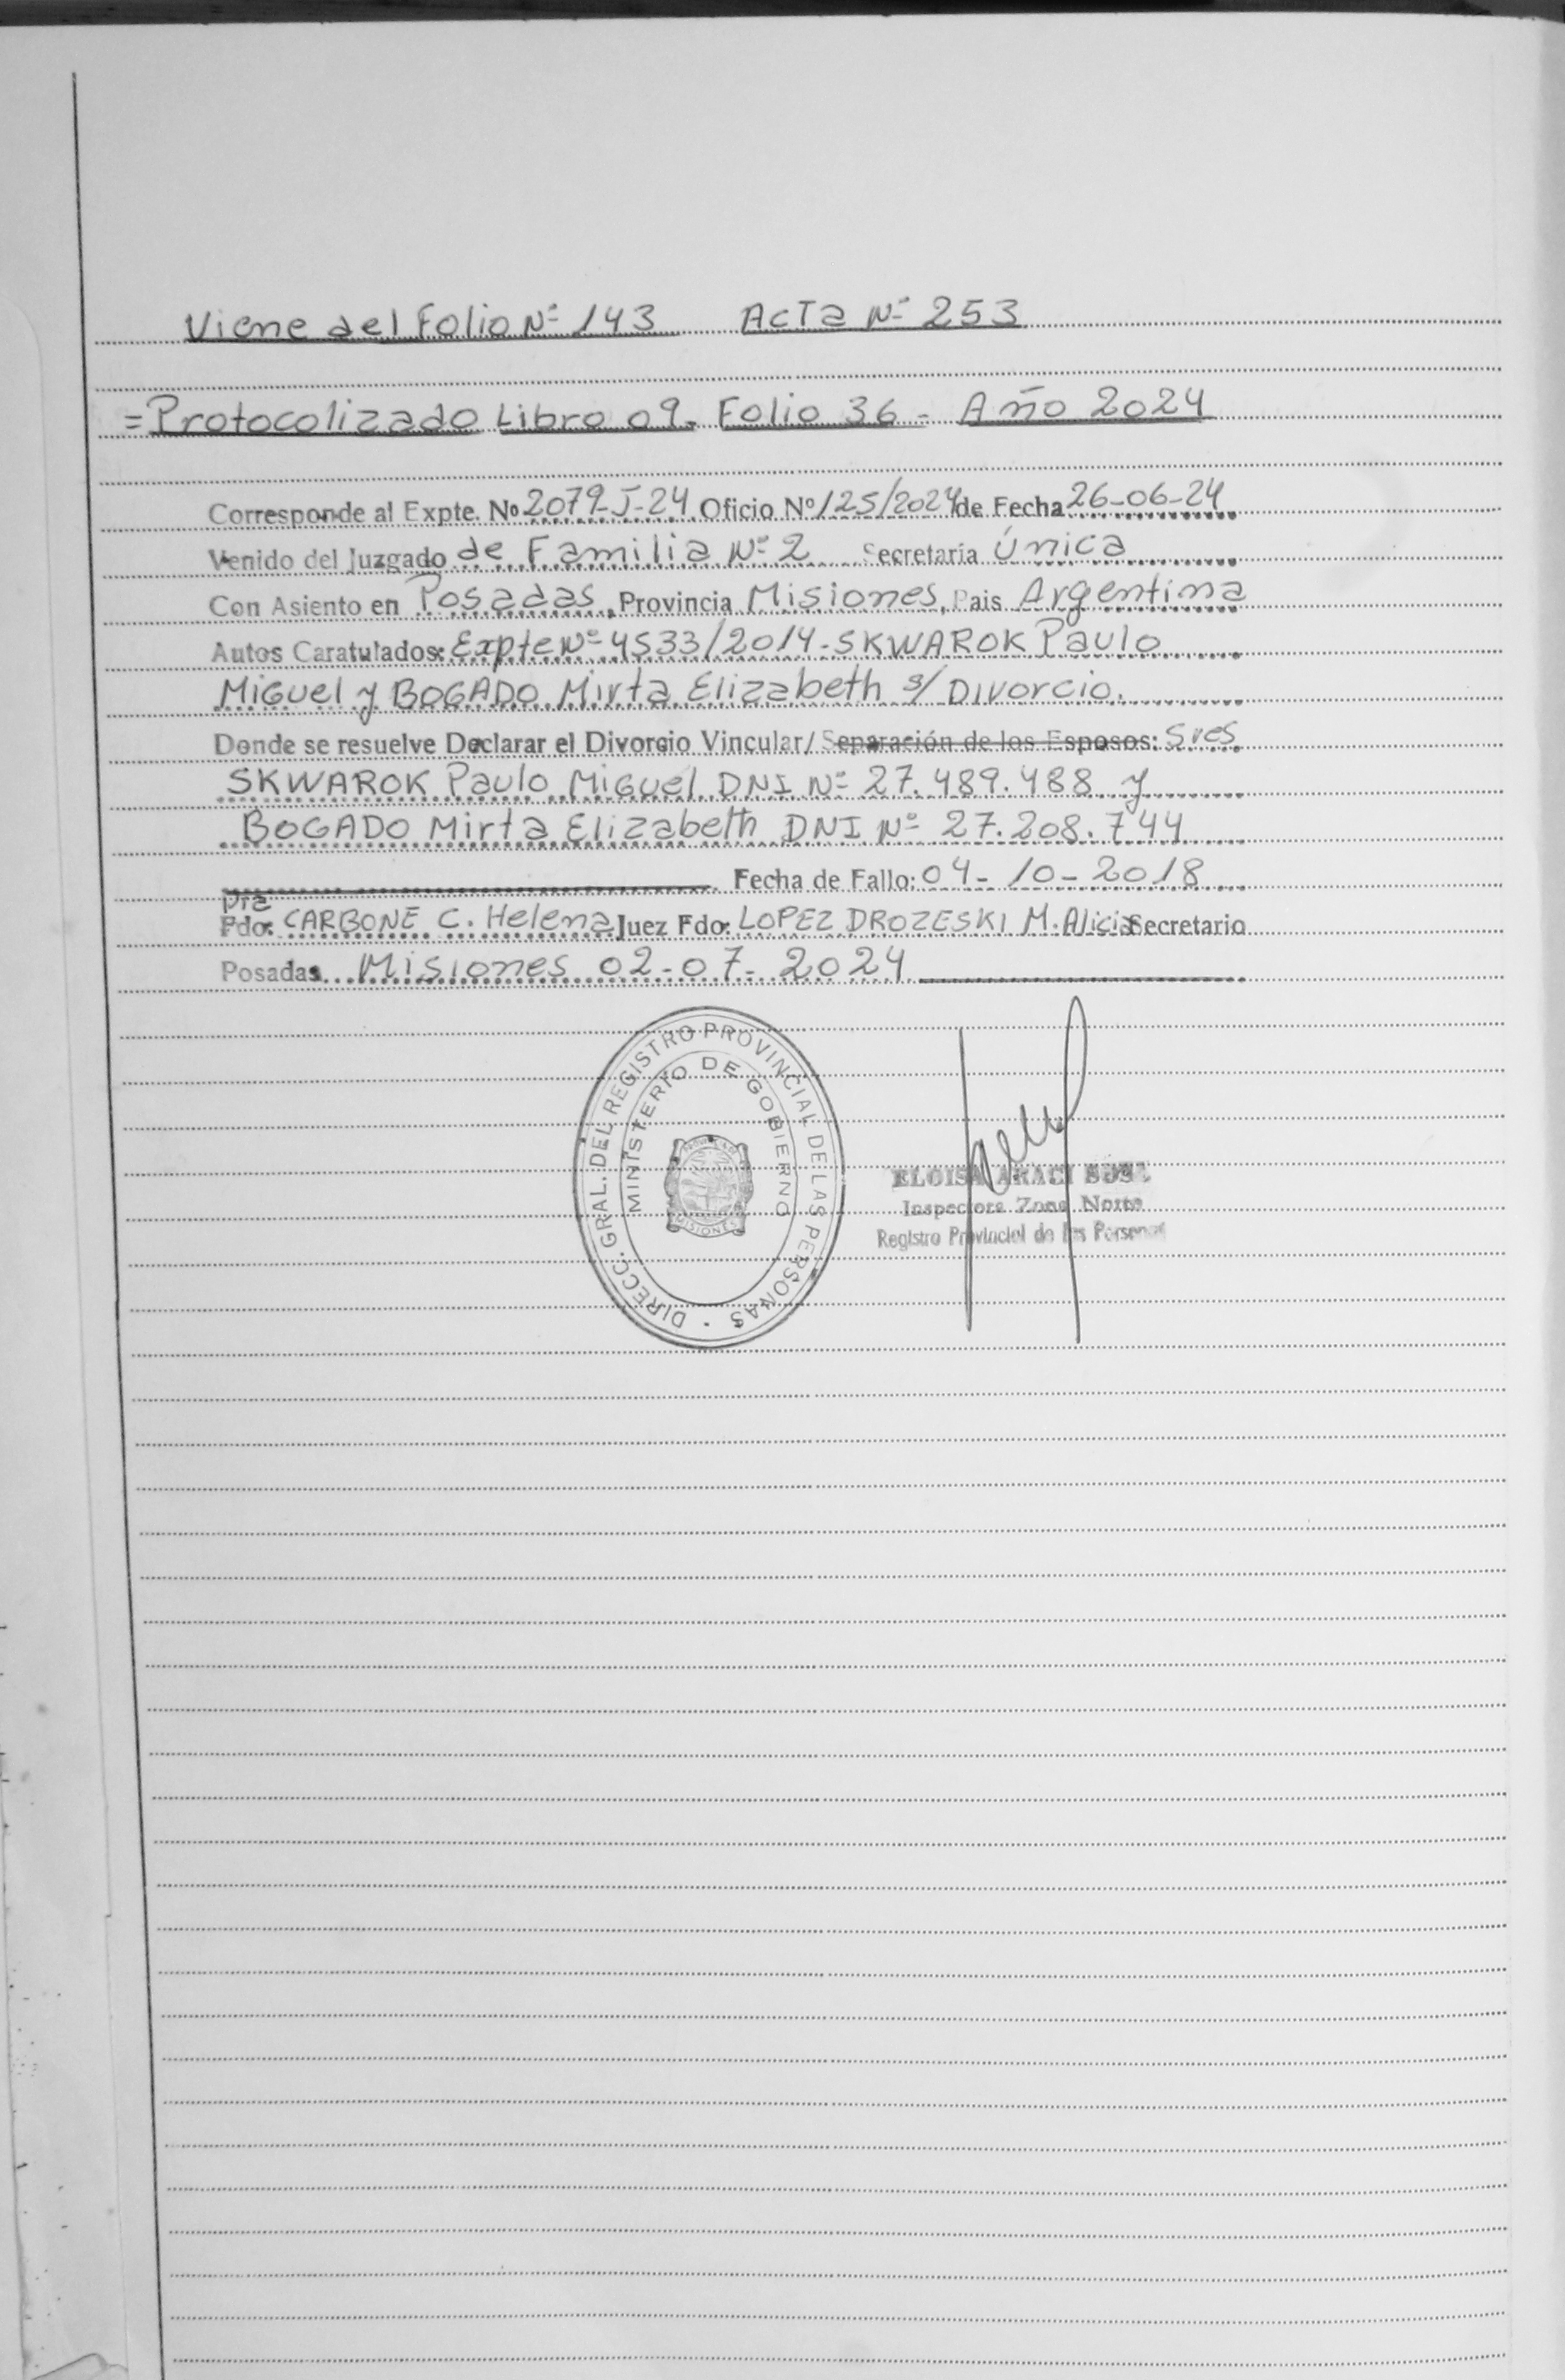 Viene del Folio Nº 143 Acta Nº 253
=Protocolizado Libro 09. Folio 36 - Año 2024
Corresponde al Expte. No 2079-J-24 Oficio Nº 125/2024 de Fecha 26-06-24
Venido del Juzgado de Familia Nº 2 Secretaría Única
Con Asiento en Posadas, Provincia Misiones, Pais Argentina
Autos Caratulados: Expte Nº 4533/2014-SKWAROK Paulo
Miguel y BOGADO Mirta Elizabeth s/ Divorcio.
Donde se resuelve Declarar el Divorcio Vincular/ Separación de los Esposos: Sres
SKWAROK Paulo Miguel DNI Nº 27.489.488 y
BOGADO Mirta Elizabeth DNI Nº 27.208.744
Fecha de Fallo: 04-10-2018
Dra
Fdo: CARBONE C. Helena Juez Fdo: LOPEZ DROZESKI M. Alicia Secretario
Posadas Misiones 02-07-2024
DIRECC. GRAL. DEL REGISTRO PROVINCIAL DE LAS PERSONAS
MINISTERIO DE GOBIERNO
MISIONES
ELOISA ARACI
Inspectora Zona Norte
Registro Provincial de las Personas